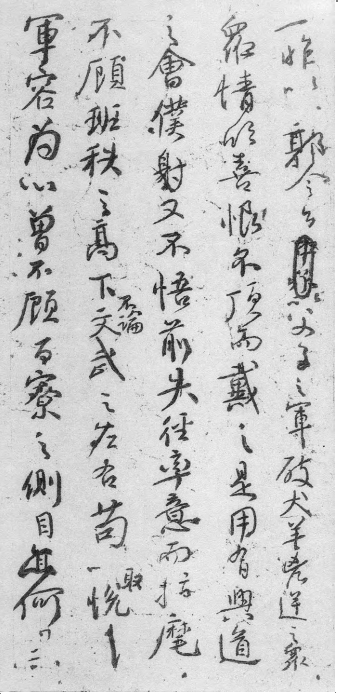 一昨以郭令公以父子之軍破犬羊兇逆之衆
衆情欣喜恨不頂而戴之是用有興道
之會僕射又不悟前失徑率意而指麾
不顧班秩之高下不論文武之左右苟以取悅
軍容為心曾不顧百寮之側目亦何